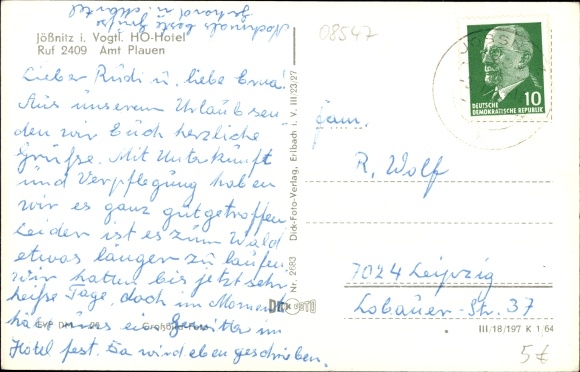 Nochmals beste Grüße
Gerhard u. Christel
Jößnitz i. Vogtl. HO-Hotel
Ruf 2409 Amt Plauen
Lieber Rudi u. liebe Erna!
Aus unserem Urlaub sen
den wir Euch herzliche
Grüße. Mit Unterkunft
und Verpflegung haben
wir es ganz gut getroffen
Leider ist es zum Wald
etwas länger zu laufen.
Wir hatten bis jetzt sehr
heiße Tage, doch im Moment
hält uns ein Gewitter im
Hotel fest. Da wird eben geschrieben.
EVP DM
Nr. 2683 Dirk Foto-Verlag, Erlbach i. V. III/23/27
DIRK FOTO
08547
DEUTSCHE
DEMOKRATISCHE REPUBLIK
10
Fam.
R. Wolf
7024 Leipzig
Löbauer-Str. 37
III/18/197 K 1/64
5€